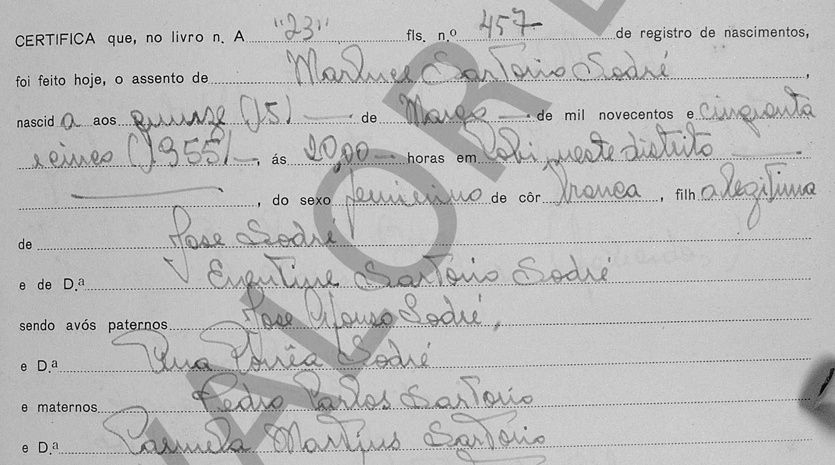 CERTIFICA que, no livro n. A "23" fls. n.º 457 de registro de nascimentos,
foi feito hoje, o assento de Marlucee Sartorio Sodré,
nascida aos quinze (15) — de Março — de mil novecentos e cinquenta
e cinco (1955) —, ás 20,00 — horas em neste distrito —
—, do sexo feminino de côr branca, filha legitima
de Jose Sodré
e de D.ª Sartorio Sodré
sendo avós paternos Jose Afonso Sodré,
e D.ª Ana Sodré
e maternos Pedro Carlos Sartorio
e D.ª Carmela Martins Sartório
VALOR